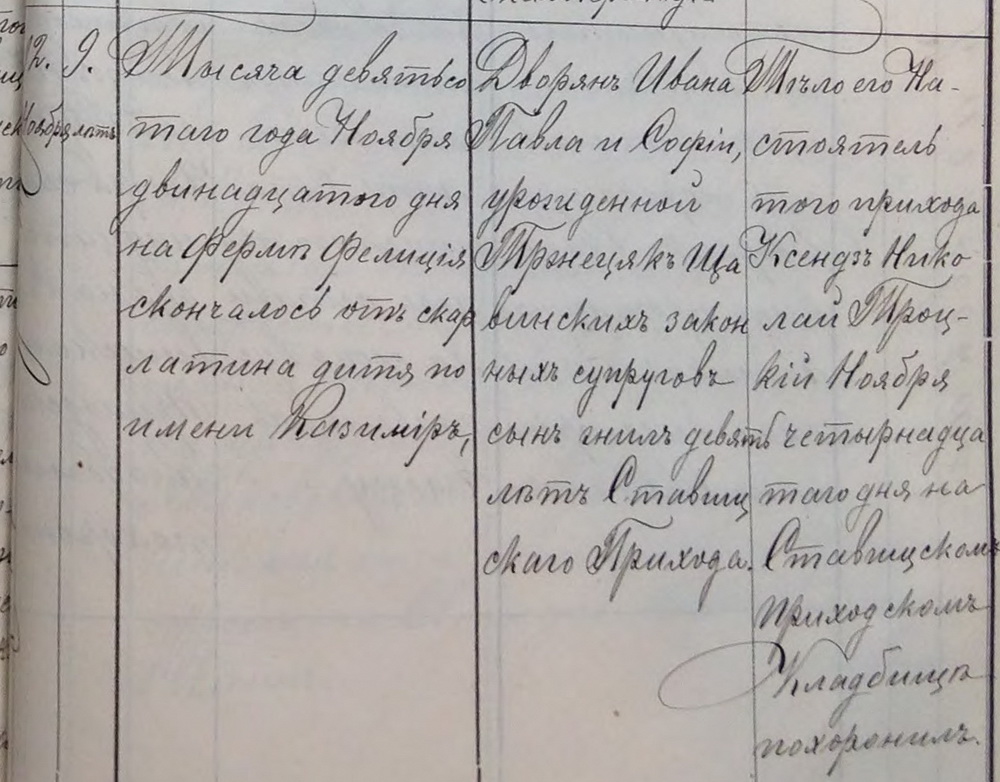 12. 9.
Ноября лѣтъ
Тысяча девятьсо
таго года Ноября
двинадцатого дня
на Фермѣ Фелиція
скончалось отъ скар
латина дитя по
имени Казиміръ,
Дворянъ Ивана
Павла и Софіи,
урожденной
Тронецякъ Ща
винскихъ закон
ныхъ супруговъ
сынъ жилъ девять
лѣтъ Ставищ
скаго Прихода.
Тѣло его На-
стоятель
того прихода
Ксендзъ Нико
лай Троц-
кій Ноября
четырнадца
таго дня на
Ставищскомъ
Приходскомъ
Кладбищѣ
похоронилъ.